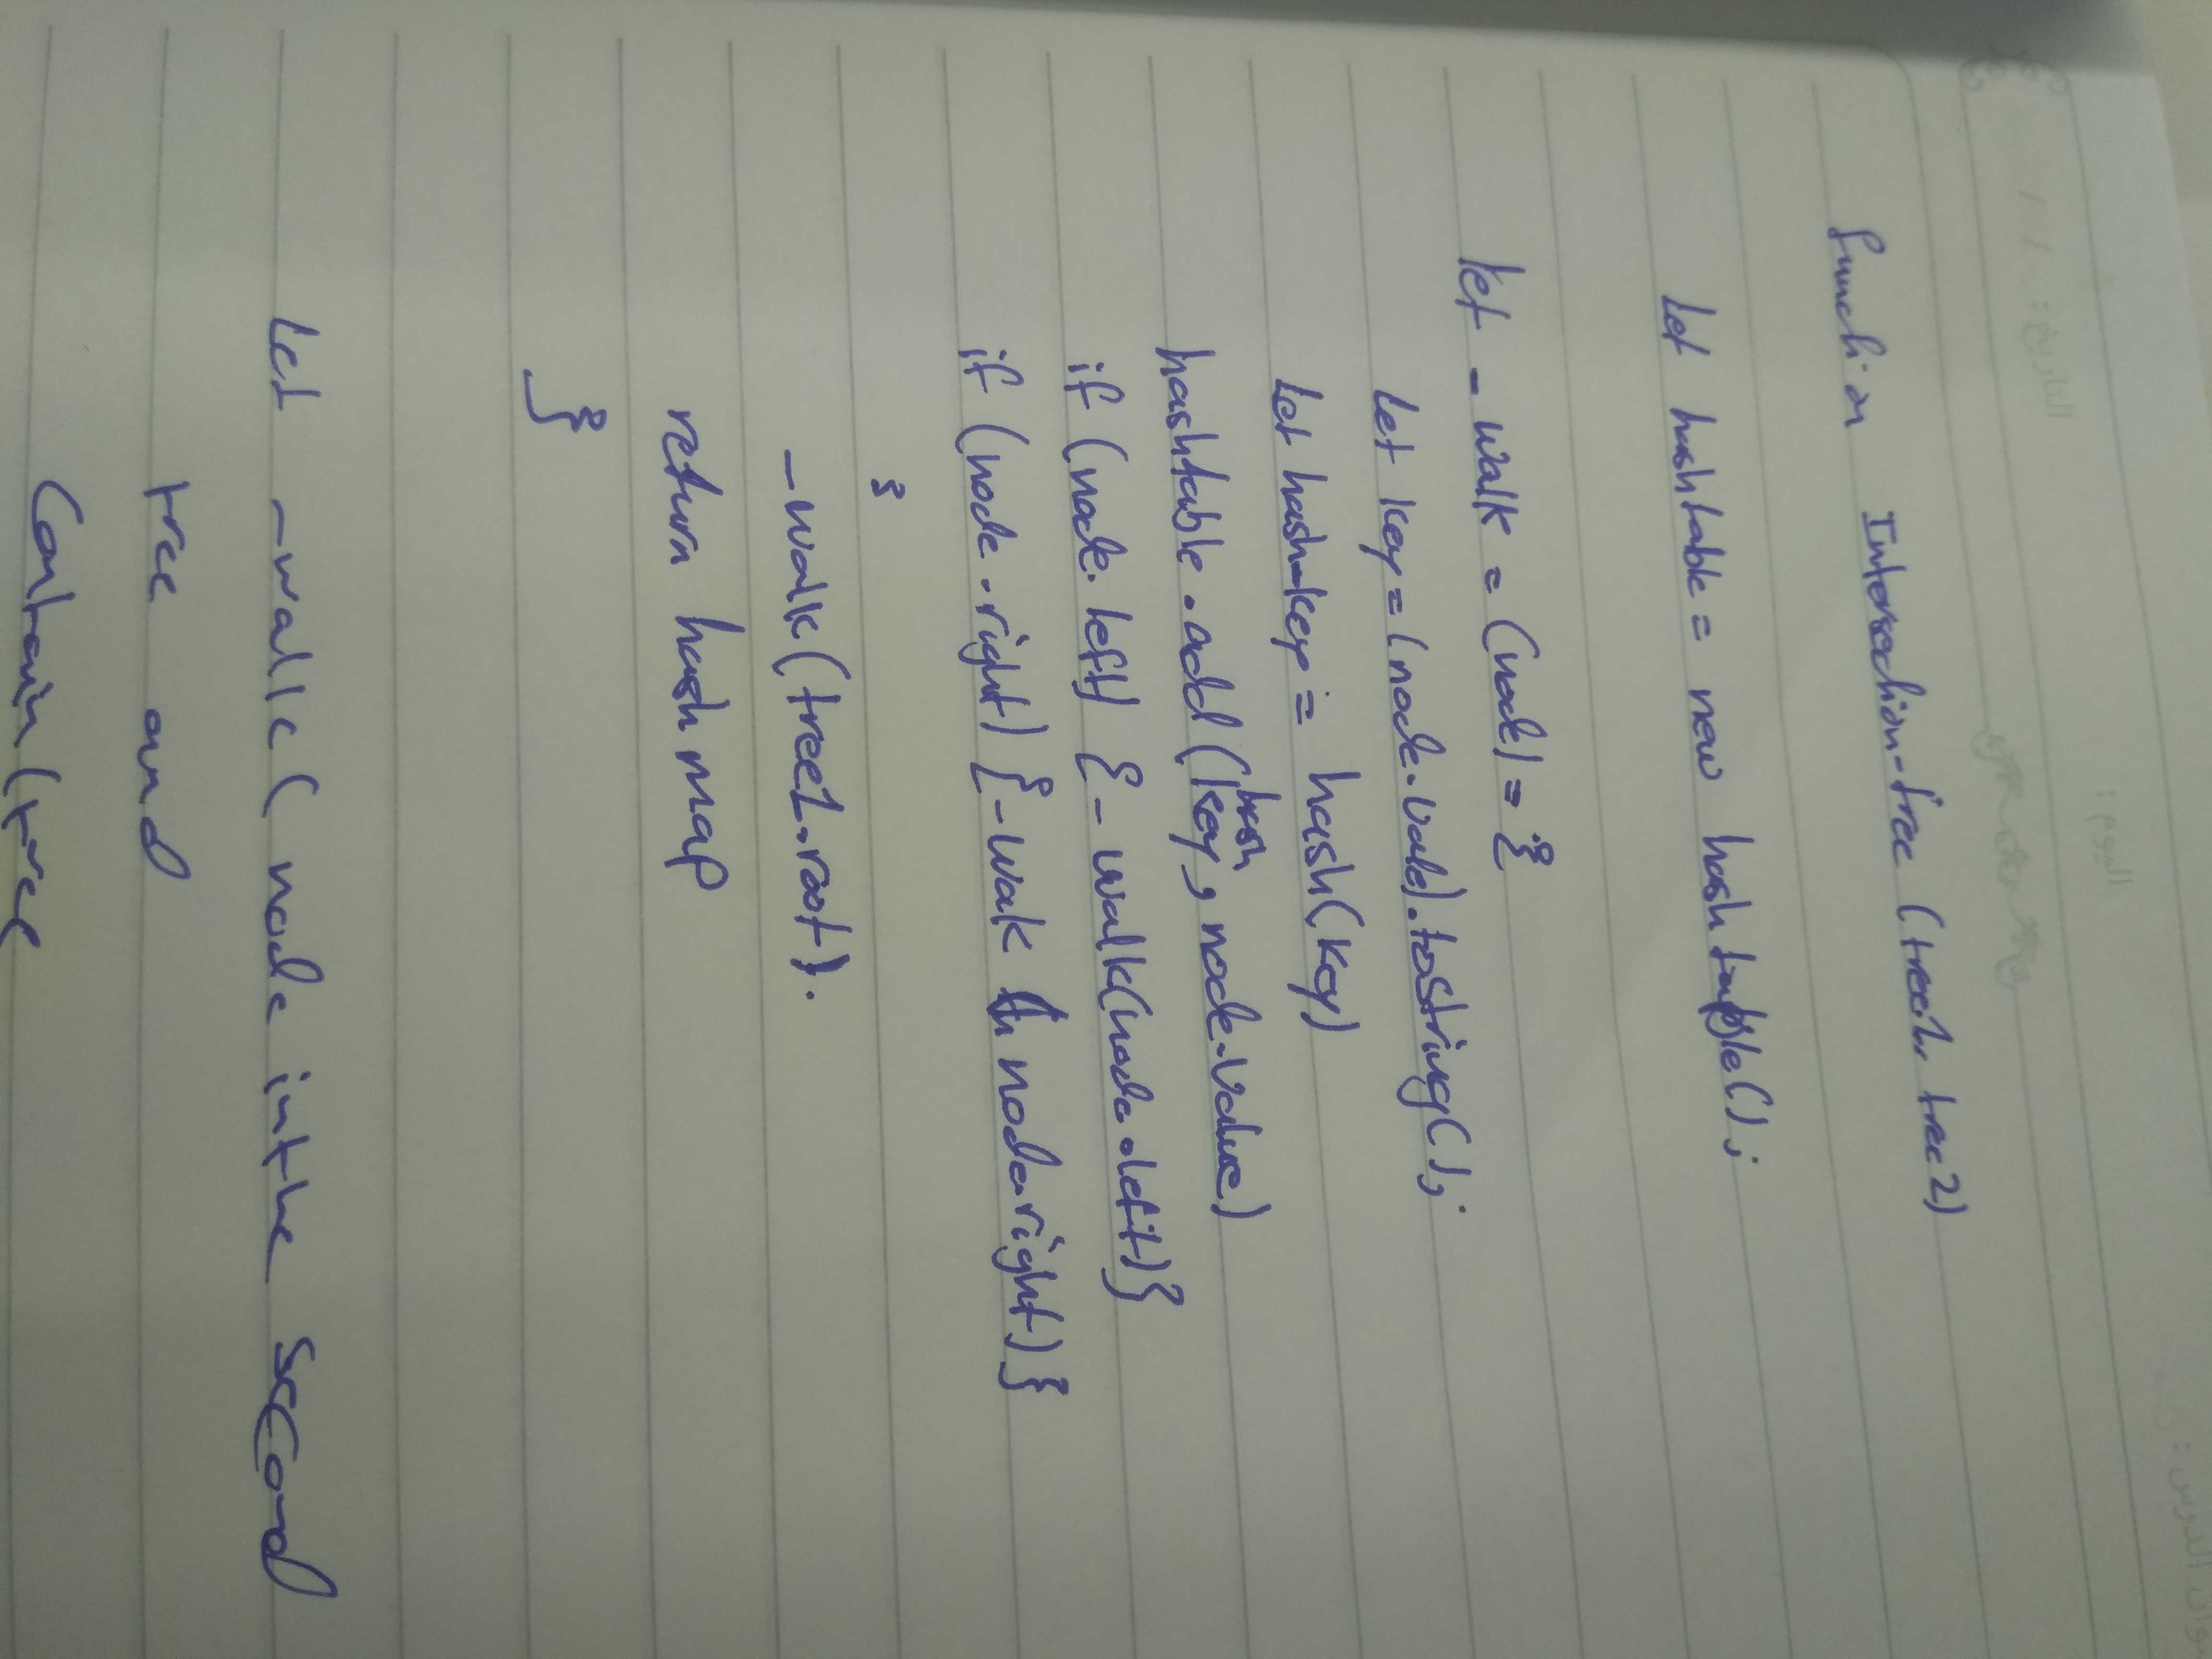 اليوم :
التاريخ : / /
function Intersection-tree (tree1, tree2)
let hashtable = new hashtable();
let _walk = (node) = {
let key = (node.value).toString();
let hash-key = hash(key)
hash
hashtable.add(key, node.value)
if (node.left) {_walk(node.left)}
if (node.right) {_walk (node.right)}
}
_walk(tree1.root).
return hashmap
}
let _walk ( node in the second
tree and
Contain (tree